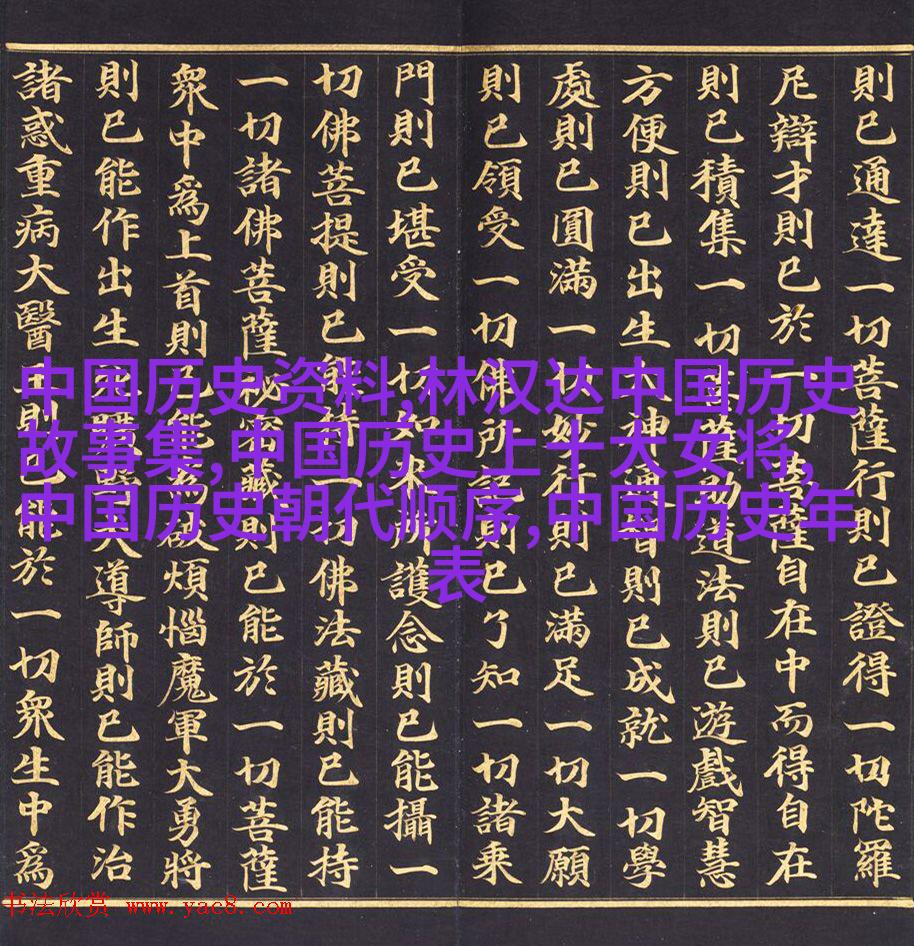 則已通達一切菩薩行則已證得一切陀羅
尼辯才則已於一切菩薩自在中而得自在
則已積集一切菩薩助道法則已遊戲智慧
方便則已出生大神通智則已成就一切學
處則已圓滿一切妙行則已滿足一切大願
則已領受一切佛所記則已了知一切諸乘
門則已堪受一切如來所護念則已能攝一
切佛菩提則已能持一切佛法藏則已能持
一切諸佛菩薩秘密藏則已能於一切菩薩
衆中為上首則已能為破煩惱魔軍大勇將
則已能作出生死曠野大導師則已能作治
諸惑重病大醫王則已能於一切衆生中為
中国历史资料,林汉达中国历史
故事集,中国历史上十大女将,
中国历史朝代顺序,中国历史年
表
书法欣赏 www.yac8.com